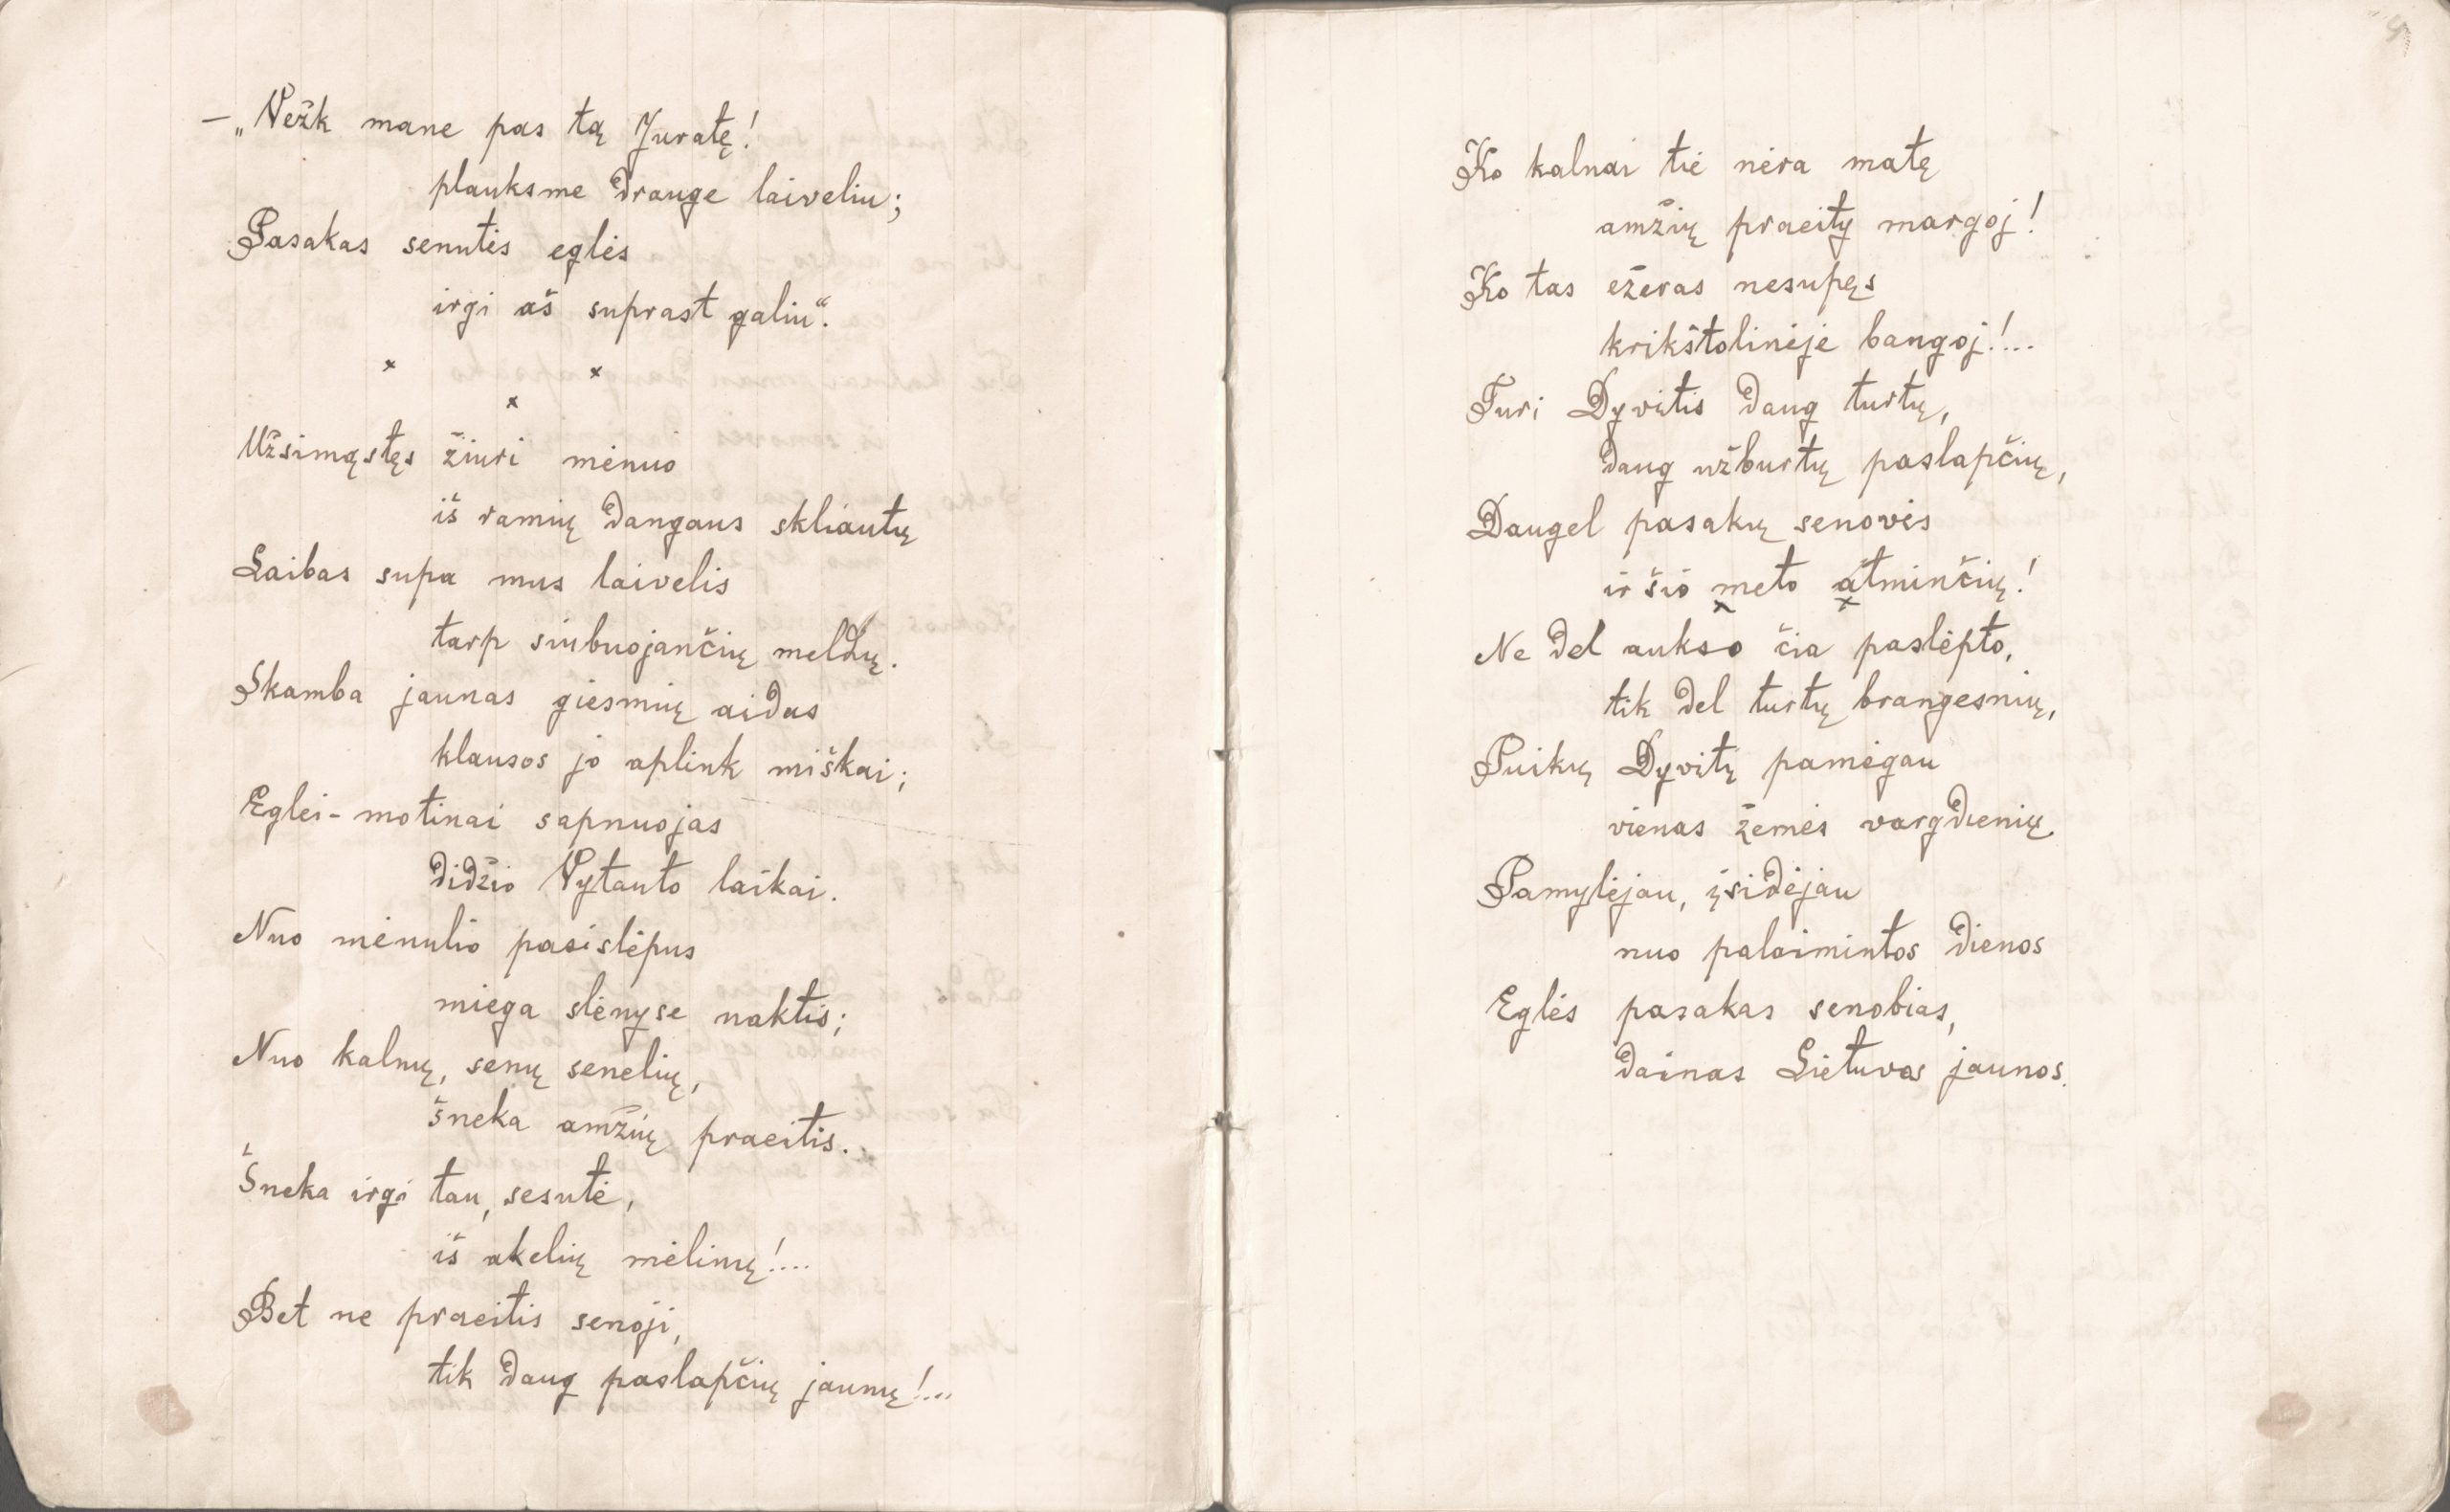 — „Vežk mane pas tą Juratę!
plauksme drauge laiveliu;
Pasakas senutės eglės
irgi aš suprast galiu“.
x x
x
Užsimąstęs žiuri mėnuo
iš ramių dangaus skliautų
Laibas supa mus laivelis
tarp siubuojančių meldų.
Skamba jaunas giesmių aidas
klausos jo aplink miškai;
Eglei-motinai sapnuojas
didžio Vytauto laikai.
Nuo mėnulio pasislėpus
miega slėnyse naktis;
Nuo kalnų, senų senelių,
šneka amžių praeitis..
Šneka irgi tau, sesutė,
iš akelių mėlinų!....
Bet ne praeitis senoji,
tik daug paslapčių jaunų!....
5
Ko kalnai tie nėra matę
amžių praeity margoj!
Ko tas ežeras nesupęs
krikštolinėje bangoj!...
Turi Dyvitis daug turtų,
daug užburtų paslapčių,
Daugel pasakų senovės
ir šio meto atminčių!
x x
Ne del aukso čia paslėpto,
tik del turtų brangesnių,
Puikų Dyvitį pamėgau
vienas žemės vargdienių.
Pamylėjau, įsidėjau
nuo palaimintos dienos
Eglės pasakas senobias,
dainas Lietuvos jaunos.